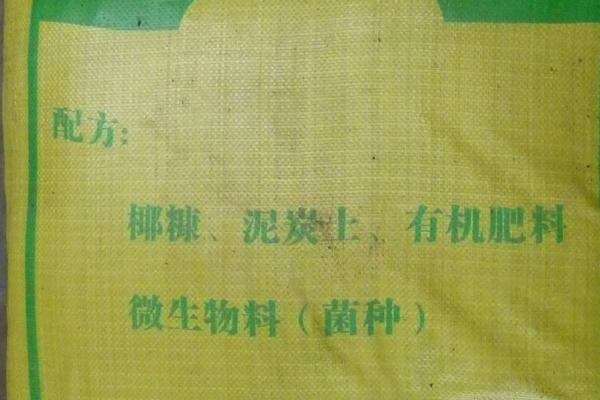 配方:
椰糠、泥炭土、有机肥料
微生物料（菌种）